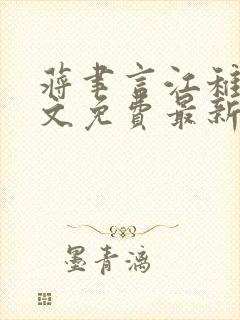 蒋聿言江稚
文免费最新
墨青漓